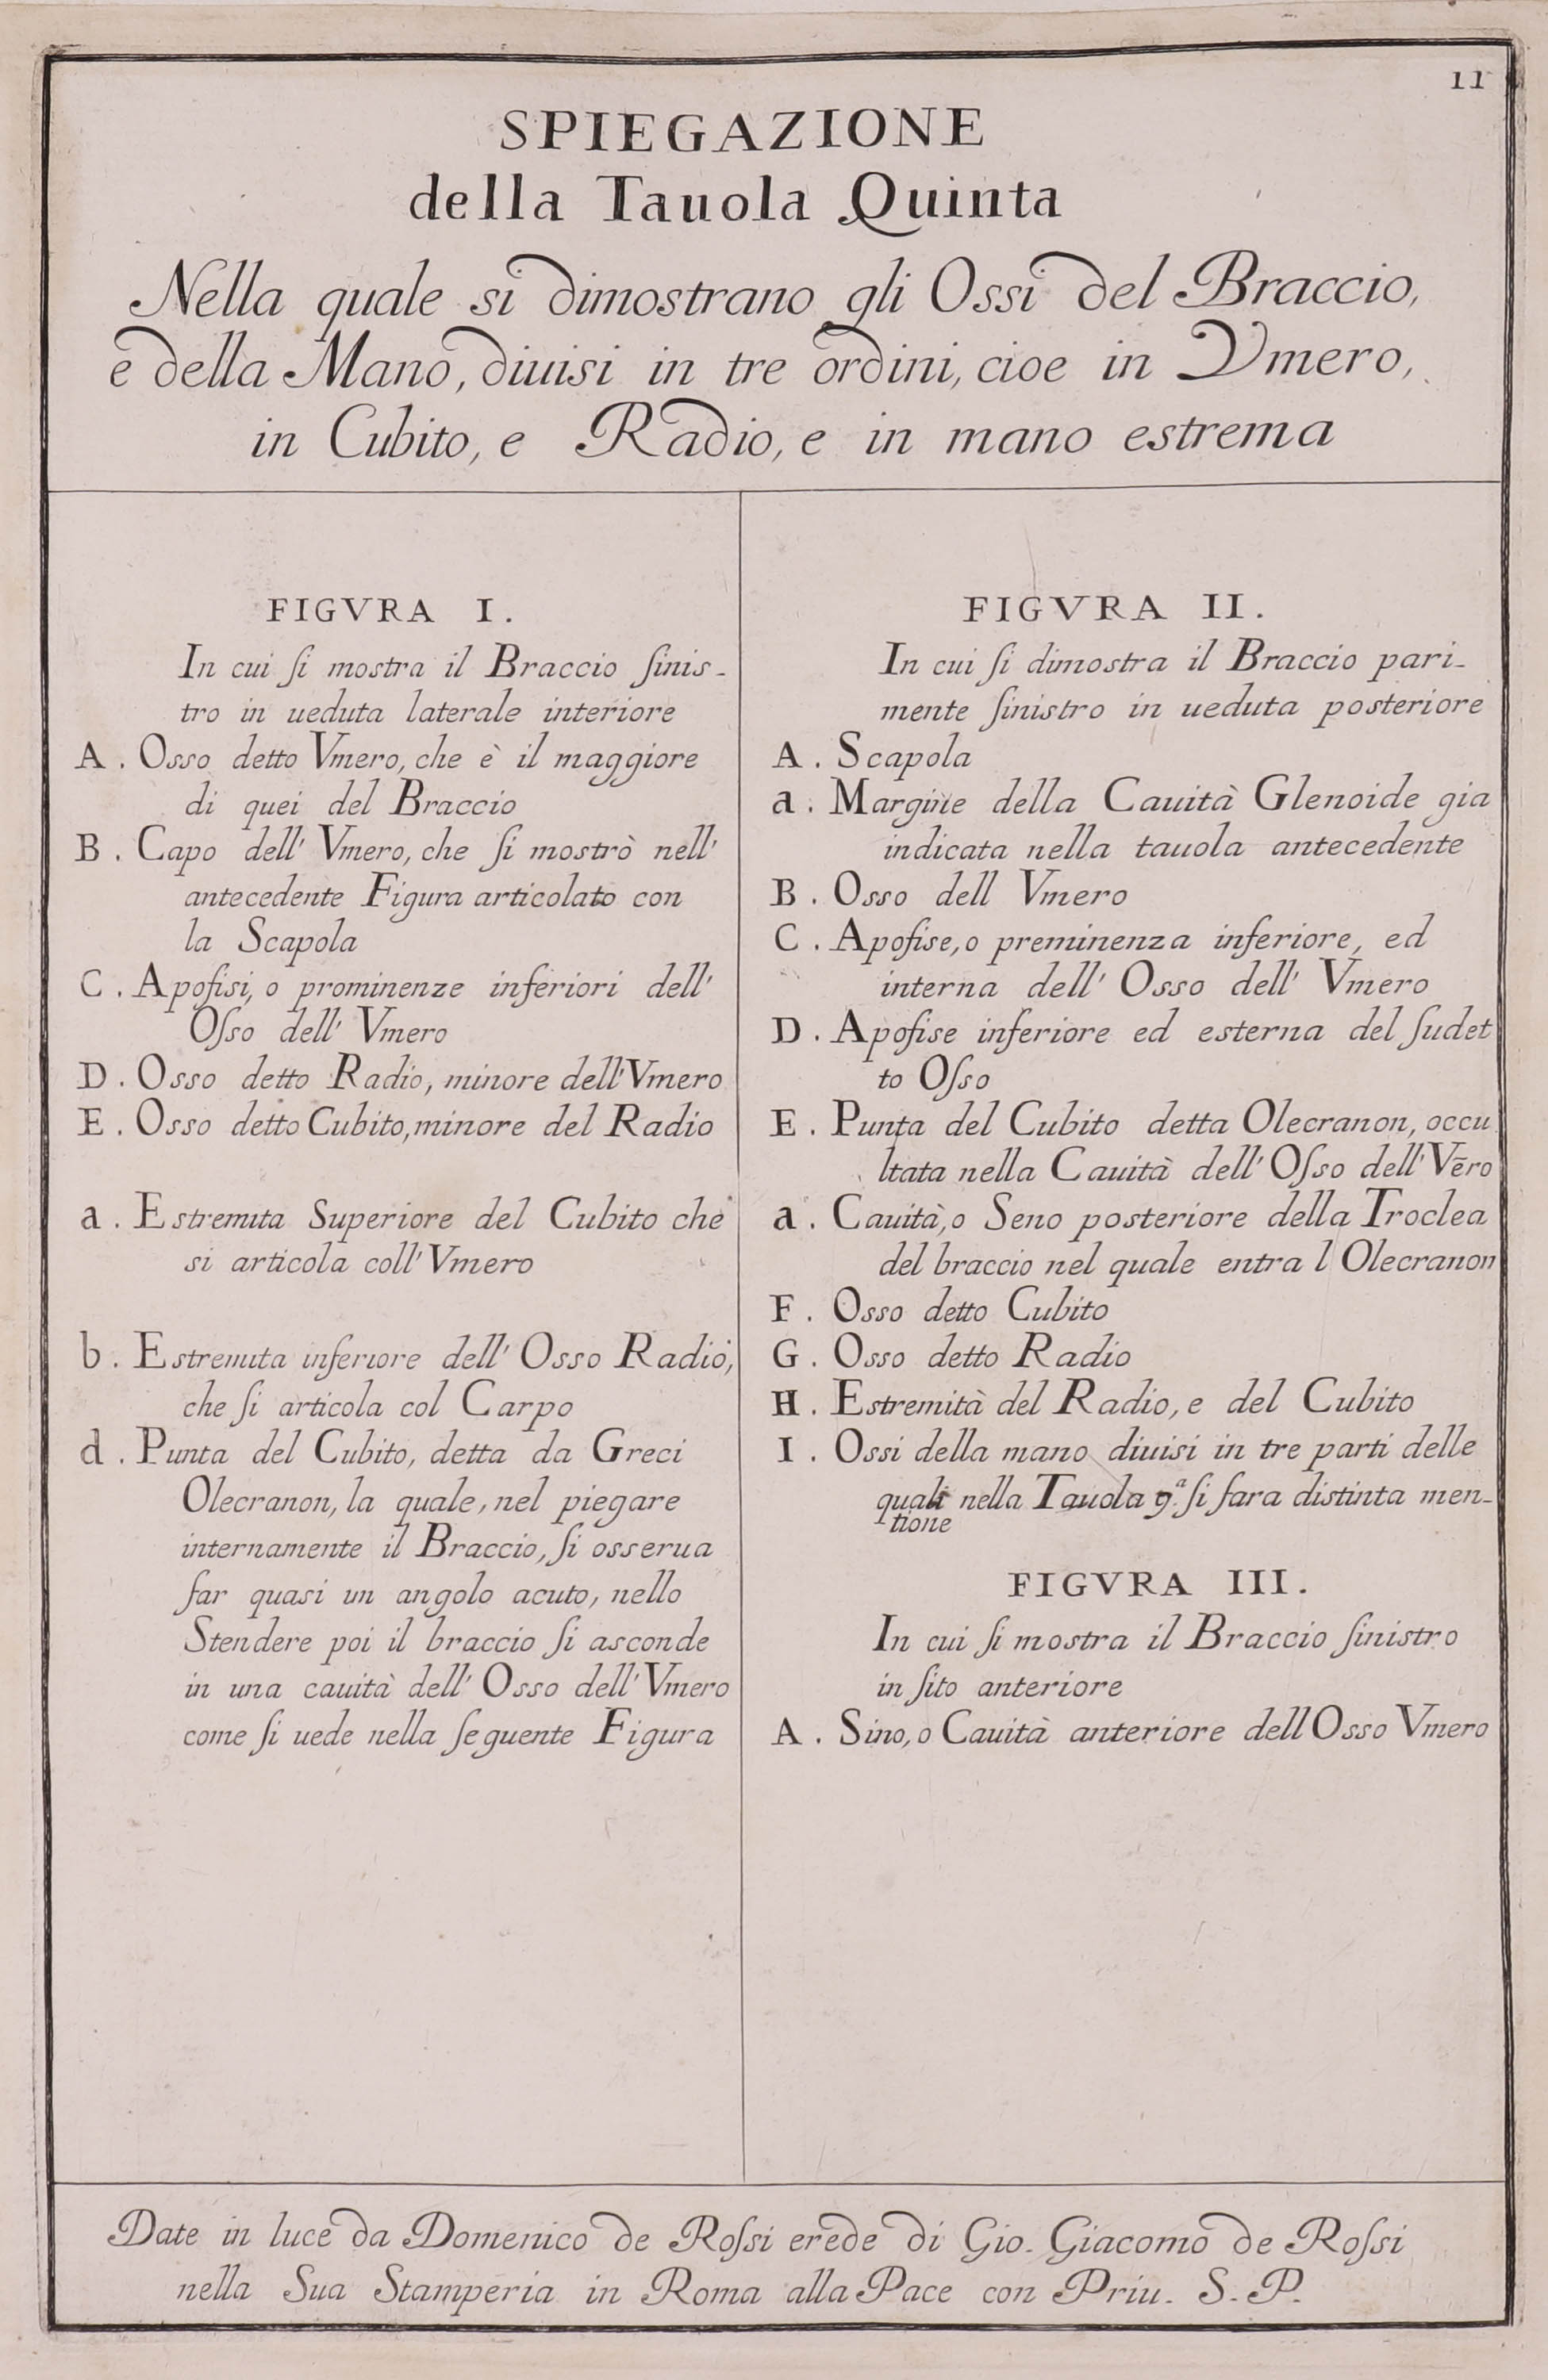 11
SPIEGAZIONE
della Tauola Quinta
Nella quale si dimostrano gli Ossi del Braccio,
e della Mano, diuisi in tre ordini, cioe in Vmero,
in Cubito, e Radio, e in mano estrema
FIGVRA I.
In cui ſi mostra il Braccio ſinis-
tro in ueduta laterale interiore
A. Osso detto Vmero, che è il maggiore
di quei del Braccio
B. Capo dell' Vmero, che ſi mostrò nell'
antecedente Figura articolato con
la Scapola
C. Apofisi, o prominenze inferiori dell'
Oſso dell' Vmero
D. Osso detto Radio, minore dell'Vmero
E. Osso detto Cubito, minore del Radio
a. Estremita Superiore del Cubito che
si articola coll' Vmero
b. Estremita inferiore dell' Osso Radio,
che ſi articola col Carpo
d. Punta del Cubito, detta da Greci
Olecranon, la quale, nel piegare
internamente il Braccio, ſi osserua
far quasi un angolo acuto, nello
Stendere poi il braccio ſi asconde
in una cauità dell' Osso dell' Vmero
come ſi uede nella ſeguente Figura
FIGVRA II.
In cui ſi dimostra il Braccio pari-
mente ſinistro in ueduta posteriore
A. Scapola
a. Margine della Cauità Glenoide gia
indicata nella tauola antecedente
B. Osso dell Vmero
C. Apofise, o preminenza inferiore, ed
interna dell' Osso dell' Vmero
D. Apofise inferiore ed esterna del ſudet
to Oſso
E. Punta del Cubito detta Olecranon, occu
ltata nella Cauità dell' Oſso dell' Vēro
a. Cauità, o Seno posteriore della Troclea
del braccio nel quale entra l Olecranon
F. Osso detto Cubito
G. Osso detto Radio
H. Estremità del Radio, e del Cubito
I. Ossi della mano diuisi in tre parti delle
quali nella Tauola 9.ª ſi fara distinta men-
tione
FIGVRA III.
In cui ſi mostra il Braccio ſinistro
in ſito anteriore
A. Sino, o Cauità anteriore dell Osso Vmero
Date in luce da Domenico de Roſsi erede di Gio. Giacomo de Roſsi
nella Sua Stamperia in Roma alla Pace con Priu. S. P.